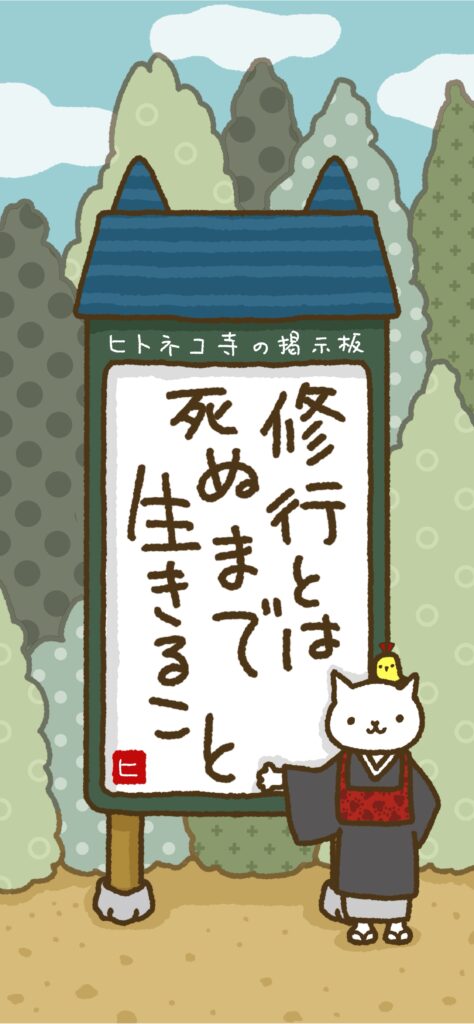 ヒトネコ寺の掲示板
修行とは
死ぬまで
生きること
ヒ